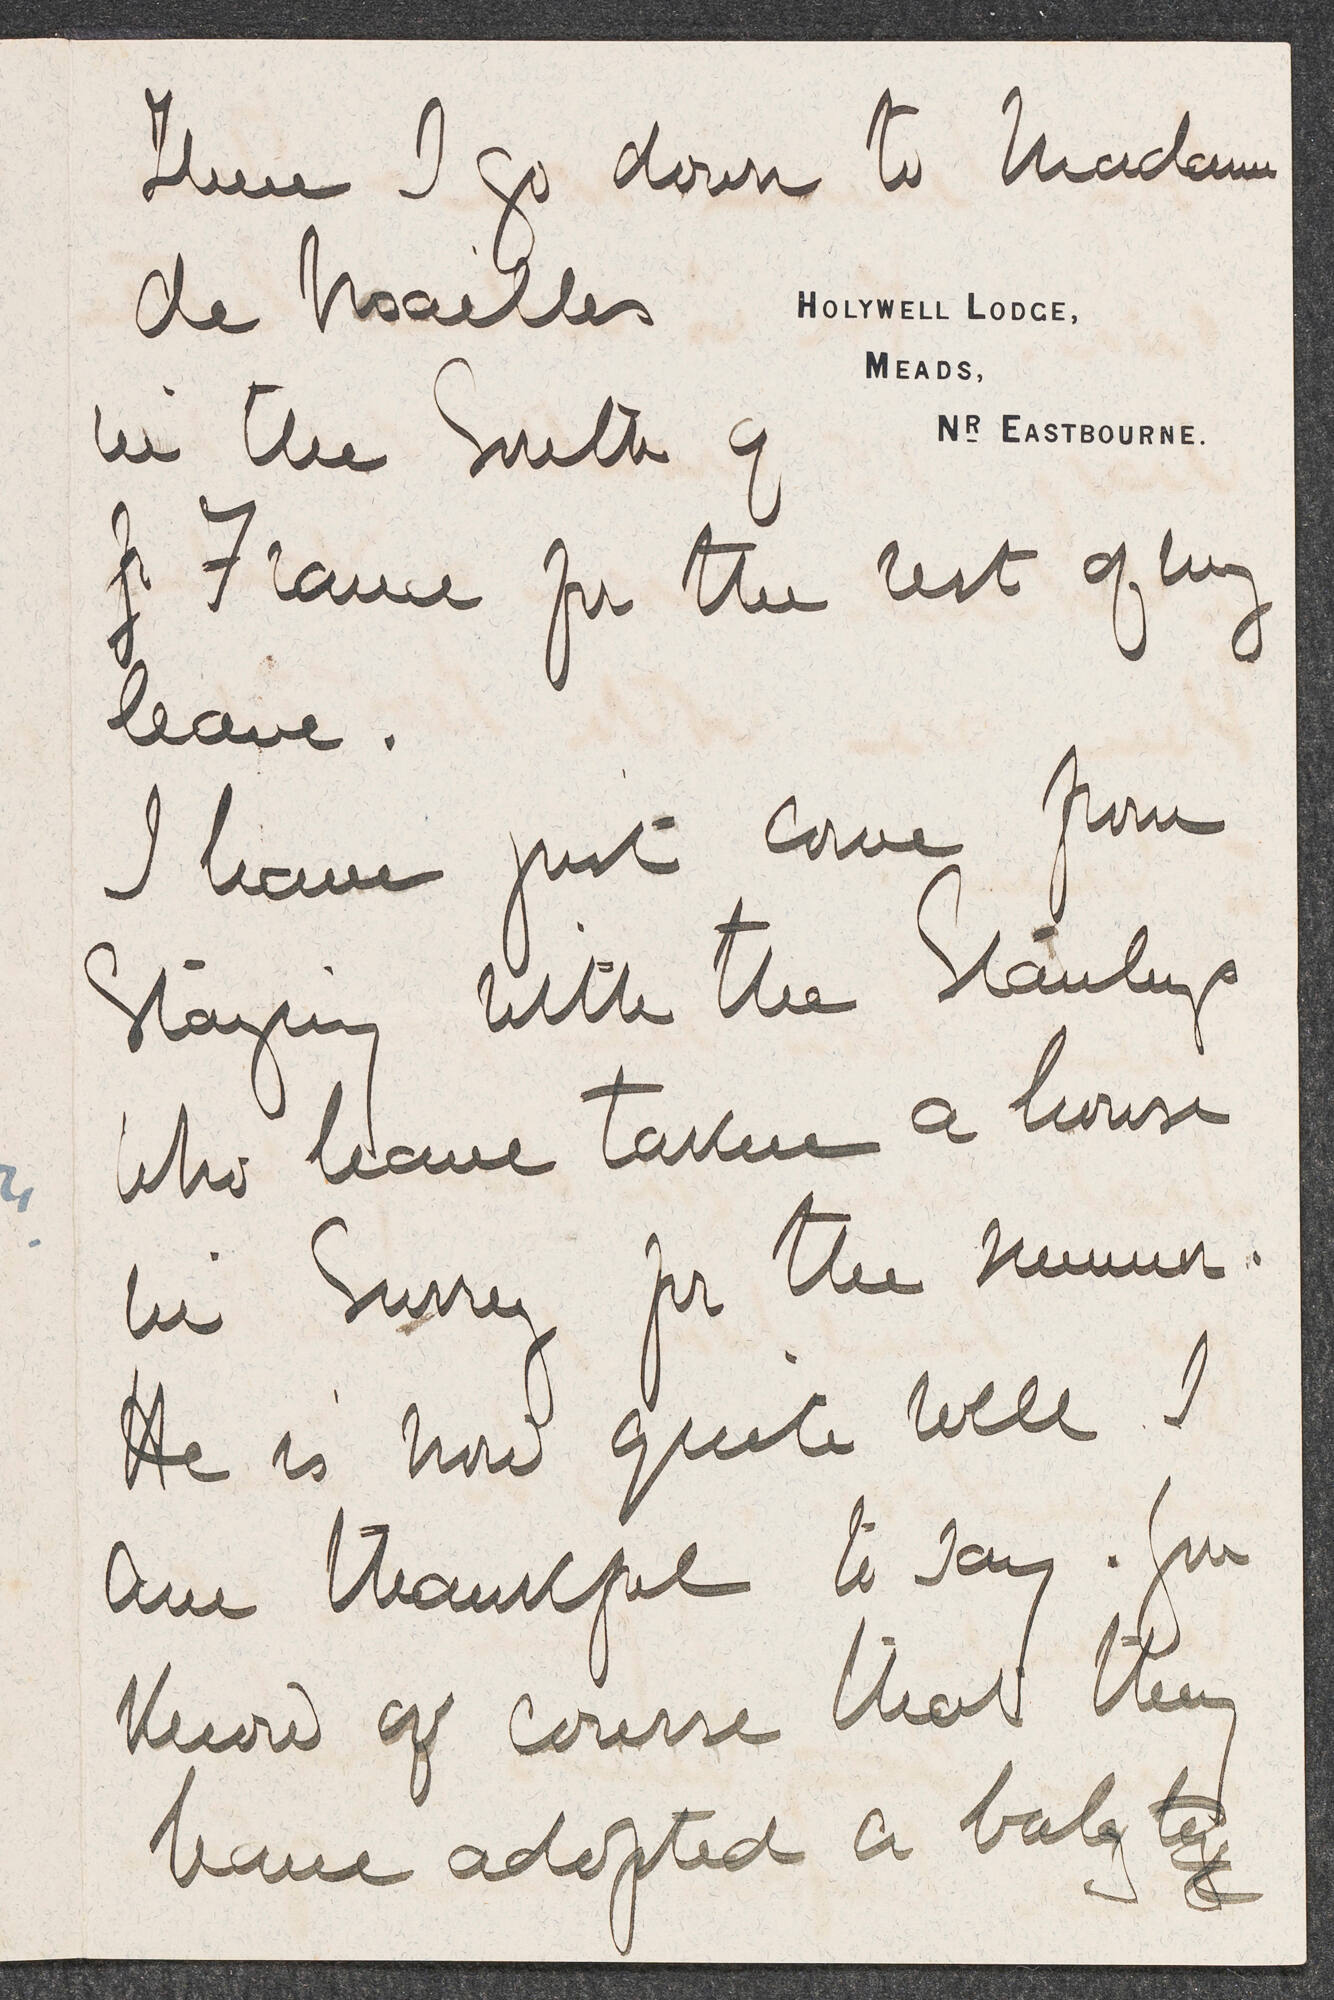 Then I go down to Madame
de Noailles
HOLYWELL LODGE,
MEADS,
NR EASTBOURNE.
in the South of
France for the rest of my
leave.
I have just come from
Staying with the Stanleys
who have taken a house
in Surrey for the summer.
He is now quite well I
am thankful to say. You
know of course that they
have adopted a baby